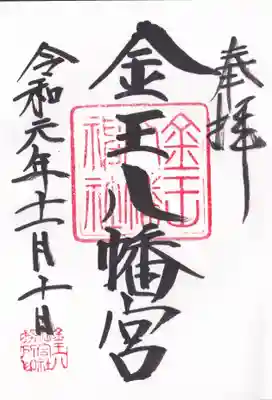 奉拝
金王八幡宮
金王
八幡
神社
令和元年十一月十日
金王八
幡宮社
務所印